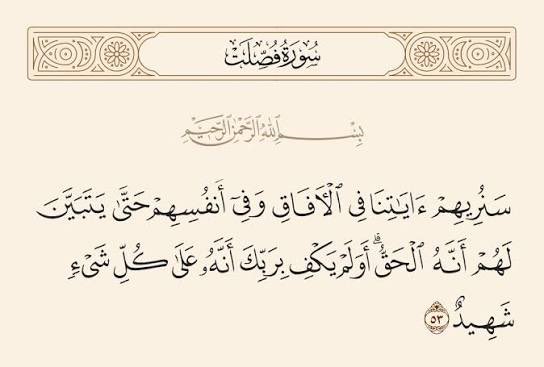 سُورَةُ فُصِّلَتْ
بِسْمِ ٱللَّهِ ٱلرَّحْمَٰنِ ٱلرَّحِيمِ
سَنُرِيهِمْ ءَايَٰتِنَا فِى ٱلْءَافَاقِ وَفِىٓ أَنفُسِهِمْ حَتَّىٰ يَتَبَيَّنَ
لَهُمْ أَنَّهُ ٱلْحَقُّ ۗ أَوَلَمْ يَكْفِ بِرَبِّكَ أَنَّهُۥ عَلَىٰ كُلِّ شَىْءٍ
شَهِيدٌ ٥٣